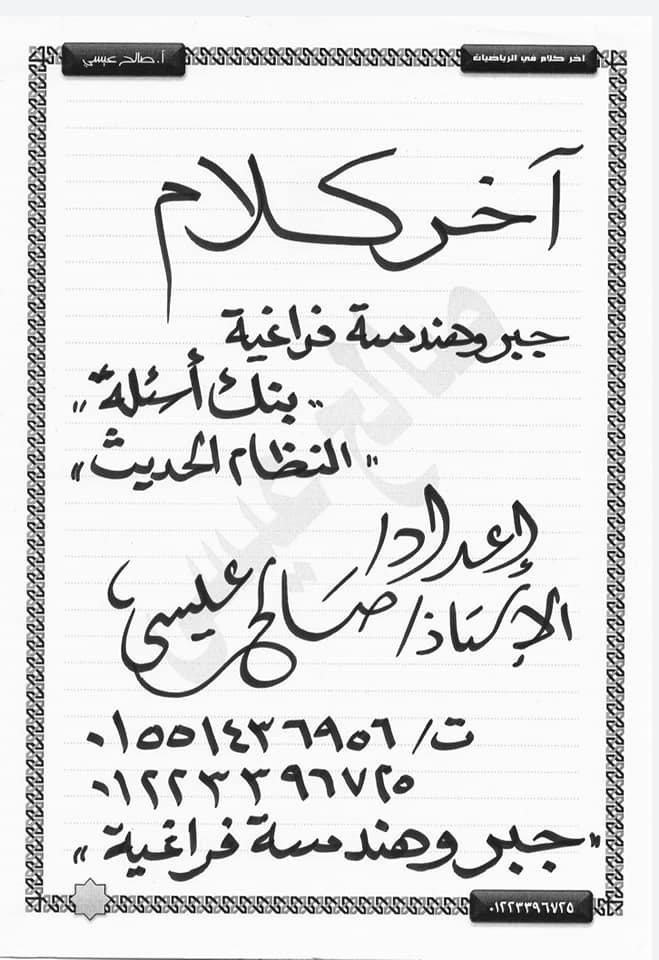 آخر كلام في الرياضيات
أ. صالح عيسي
آخر كلام
جبر وهندسة فراغية
"بنك أسئلة"
"النظام الحديث"
إعداد/
الأستاذ/ صالح عيسى
ت/ ٠١٥٥١٤٣٦٩٥٦
٠١٢٢٣٣٩٦٧٢٥
"جبر وهندسة فراغية"
٠١٢٢٣٣٩٦٧٢٥
صالح عيسى